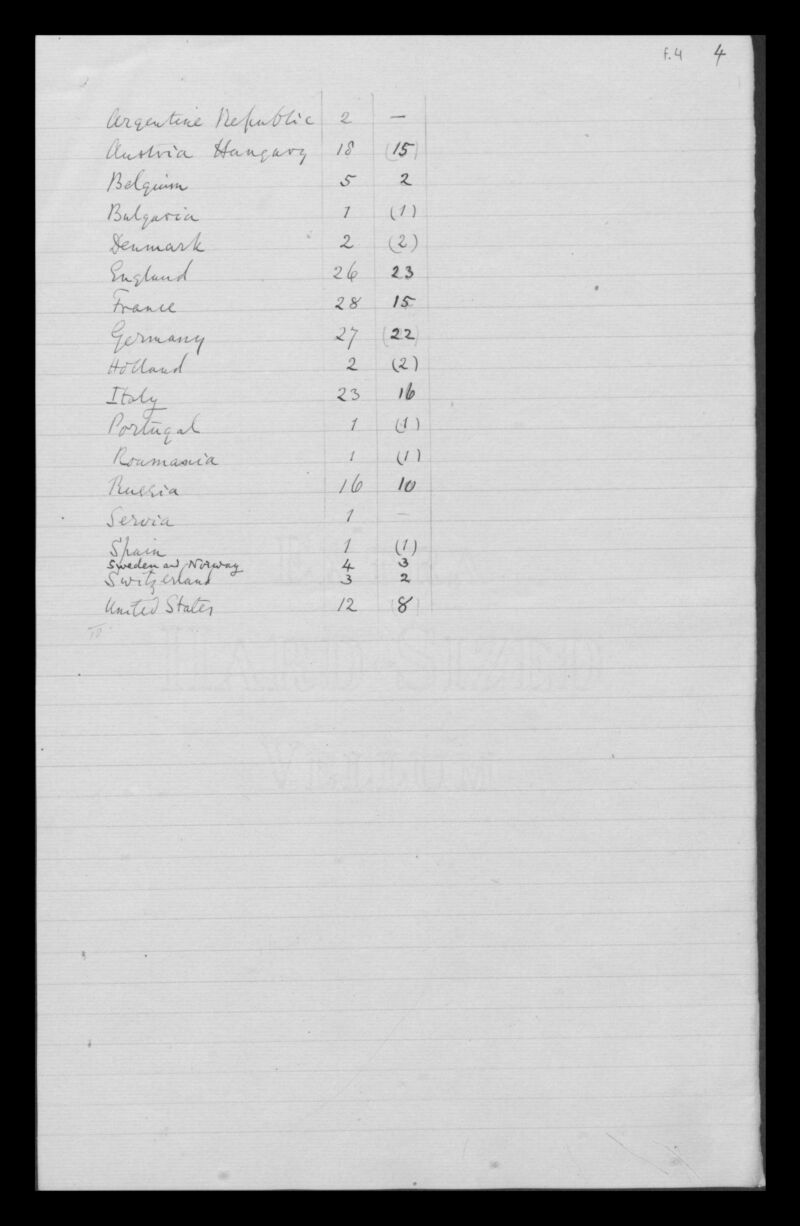 f.4 4
Argentine Republic 2 —
Austria Hungary 18 (15)
Belgium 5 2
Bulgaria 1 (1)
Denmark 2 (2)
England 26 23
France 28 15
Germany 27 (22)
Holland 2 (2)
Italy 23 16
Portugal 1 (1)
Roumania 1 (1)
Russia 16 10
Servia 1 —
Spain 1 (1)
Sweden and Norway 4 3
Switzerland 3 2
United States 12 (8)
HARD SIZED
VELLUM